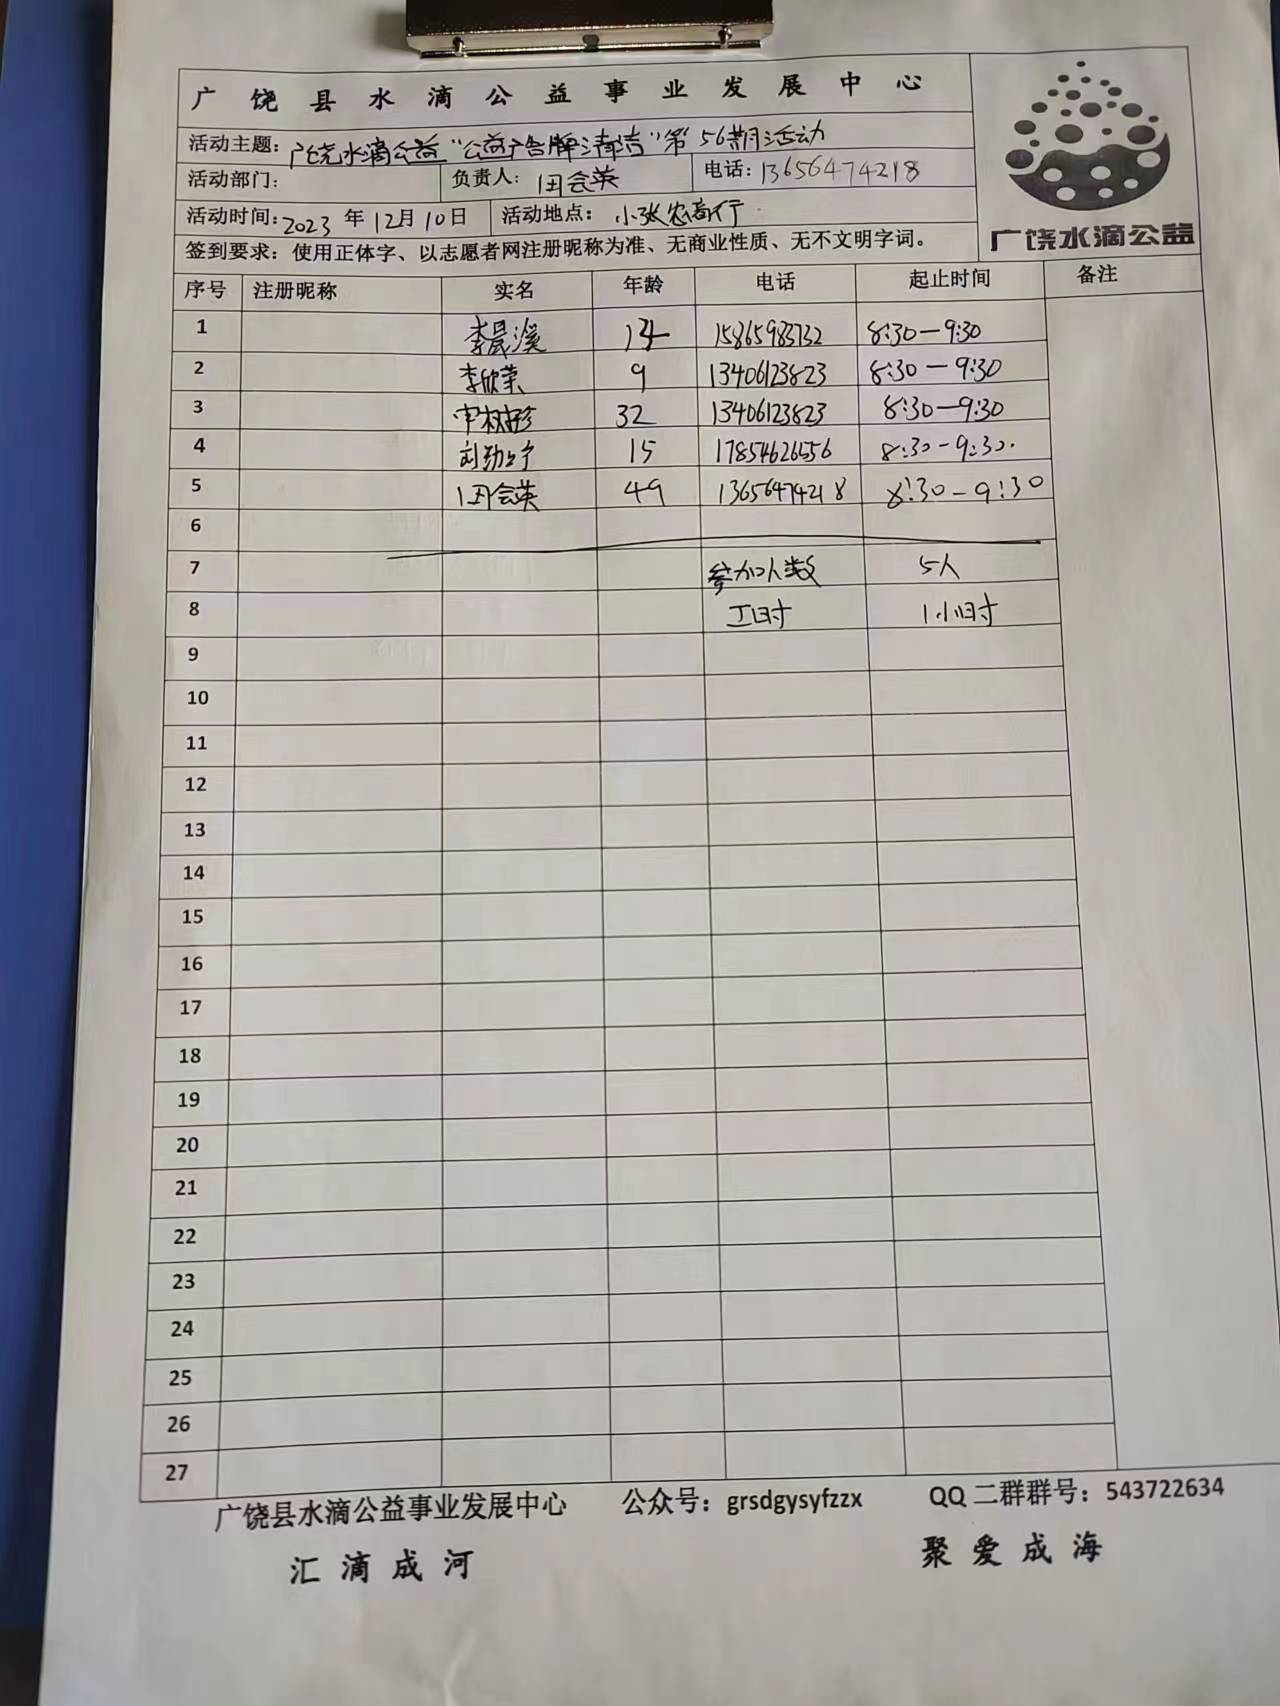 广饶县水滴公益事业发展中心
活动主题：广饶水滴公益“公益广告牌清洁”第56期活动
活动部门： 负责人：田会英 电话：13656474218
活动时间：2023年12月10日 活动地点：小张农商行
签到要求：使用正体字、以志愿者网注册昵称为准、无商业性质、无不文明字词。
广饶水滴公益
序号 注册昵称 实名 年龄 电话 起止时间 备注
1 李晨溪 14 15865983732 8:30—9:30
2 李欣荣 9 13406123823 8:30—9:30
3 32 13406123823 8:30—9:30
4 15 17854626556 8:30-9:30.
5 田会英 49 13656474218 8:30-9:30
6
7 参加人数 5人
8 工时 1小时
9
10
11
12
13
14
15
16
17
18
19
20
21
22
23
24
25
26
27
广饶县水滴公益事业发展中心 公众号：grsdgysyfzzx QQ二群群号：543722634
汇滴成河 聚爱成海